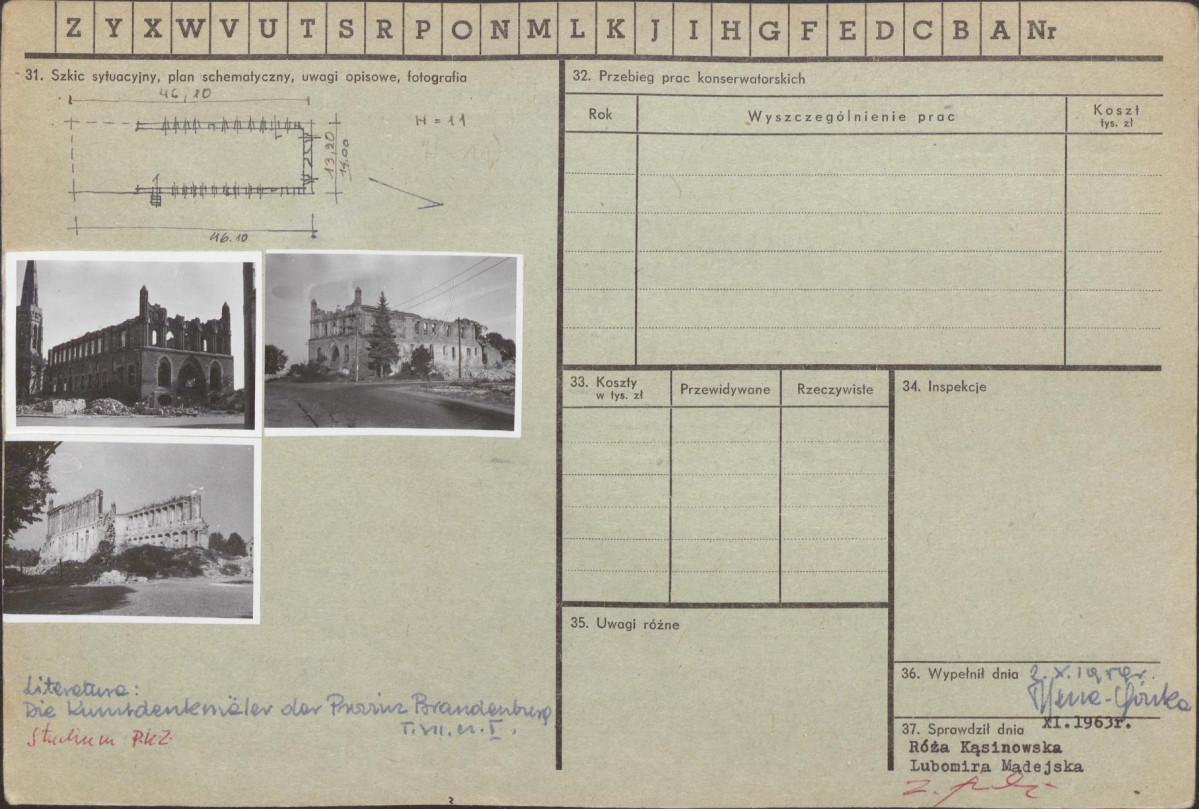 Z Y X W V U T S R P O N M L K J I H G F E D C B A Nr
31. Szkic sytuacyjny, plan schematyczny, uwagi opisowe, fotografia
46,10
H = 11
13,20
14.00
46.10
Literatura:
Die Kunstdenkmäler der Provinz Brandenburg
Studium PKZ
32. Przebieg prac konserwatorskich
Rok
Wyszczególnienie prac
Koszt
tys. zł
33. Koszty
w tys. zł
Przewidywane
Rzeczywiste
34. Inspekcje
35. Uwagi różne
36. Wypełnił dnia
37. Sprawdził dnia XI.1963r.
Róża Kąsinowska
Lubomira Mądejska